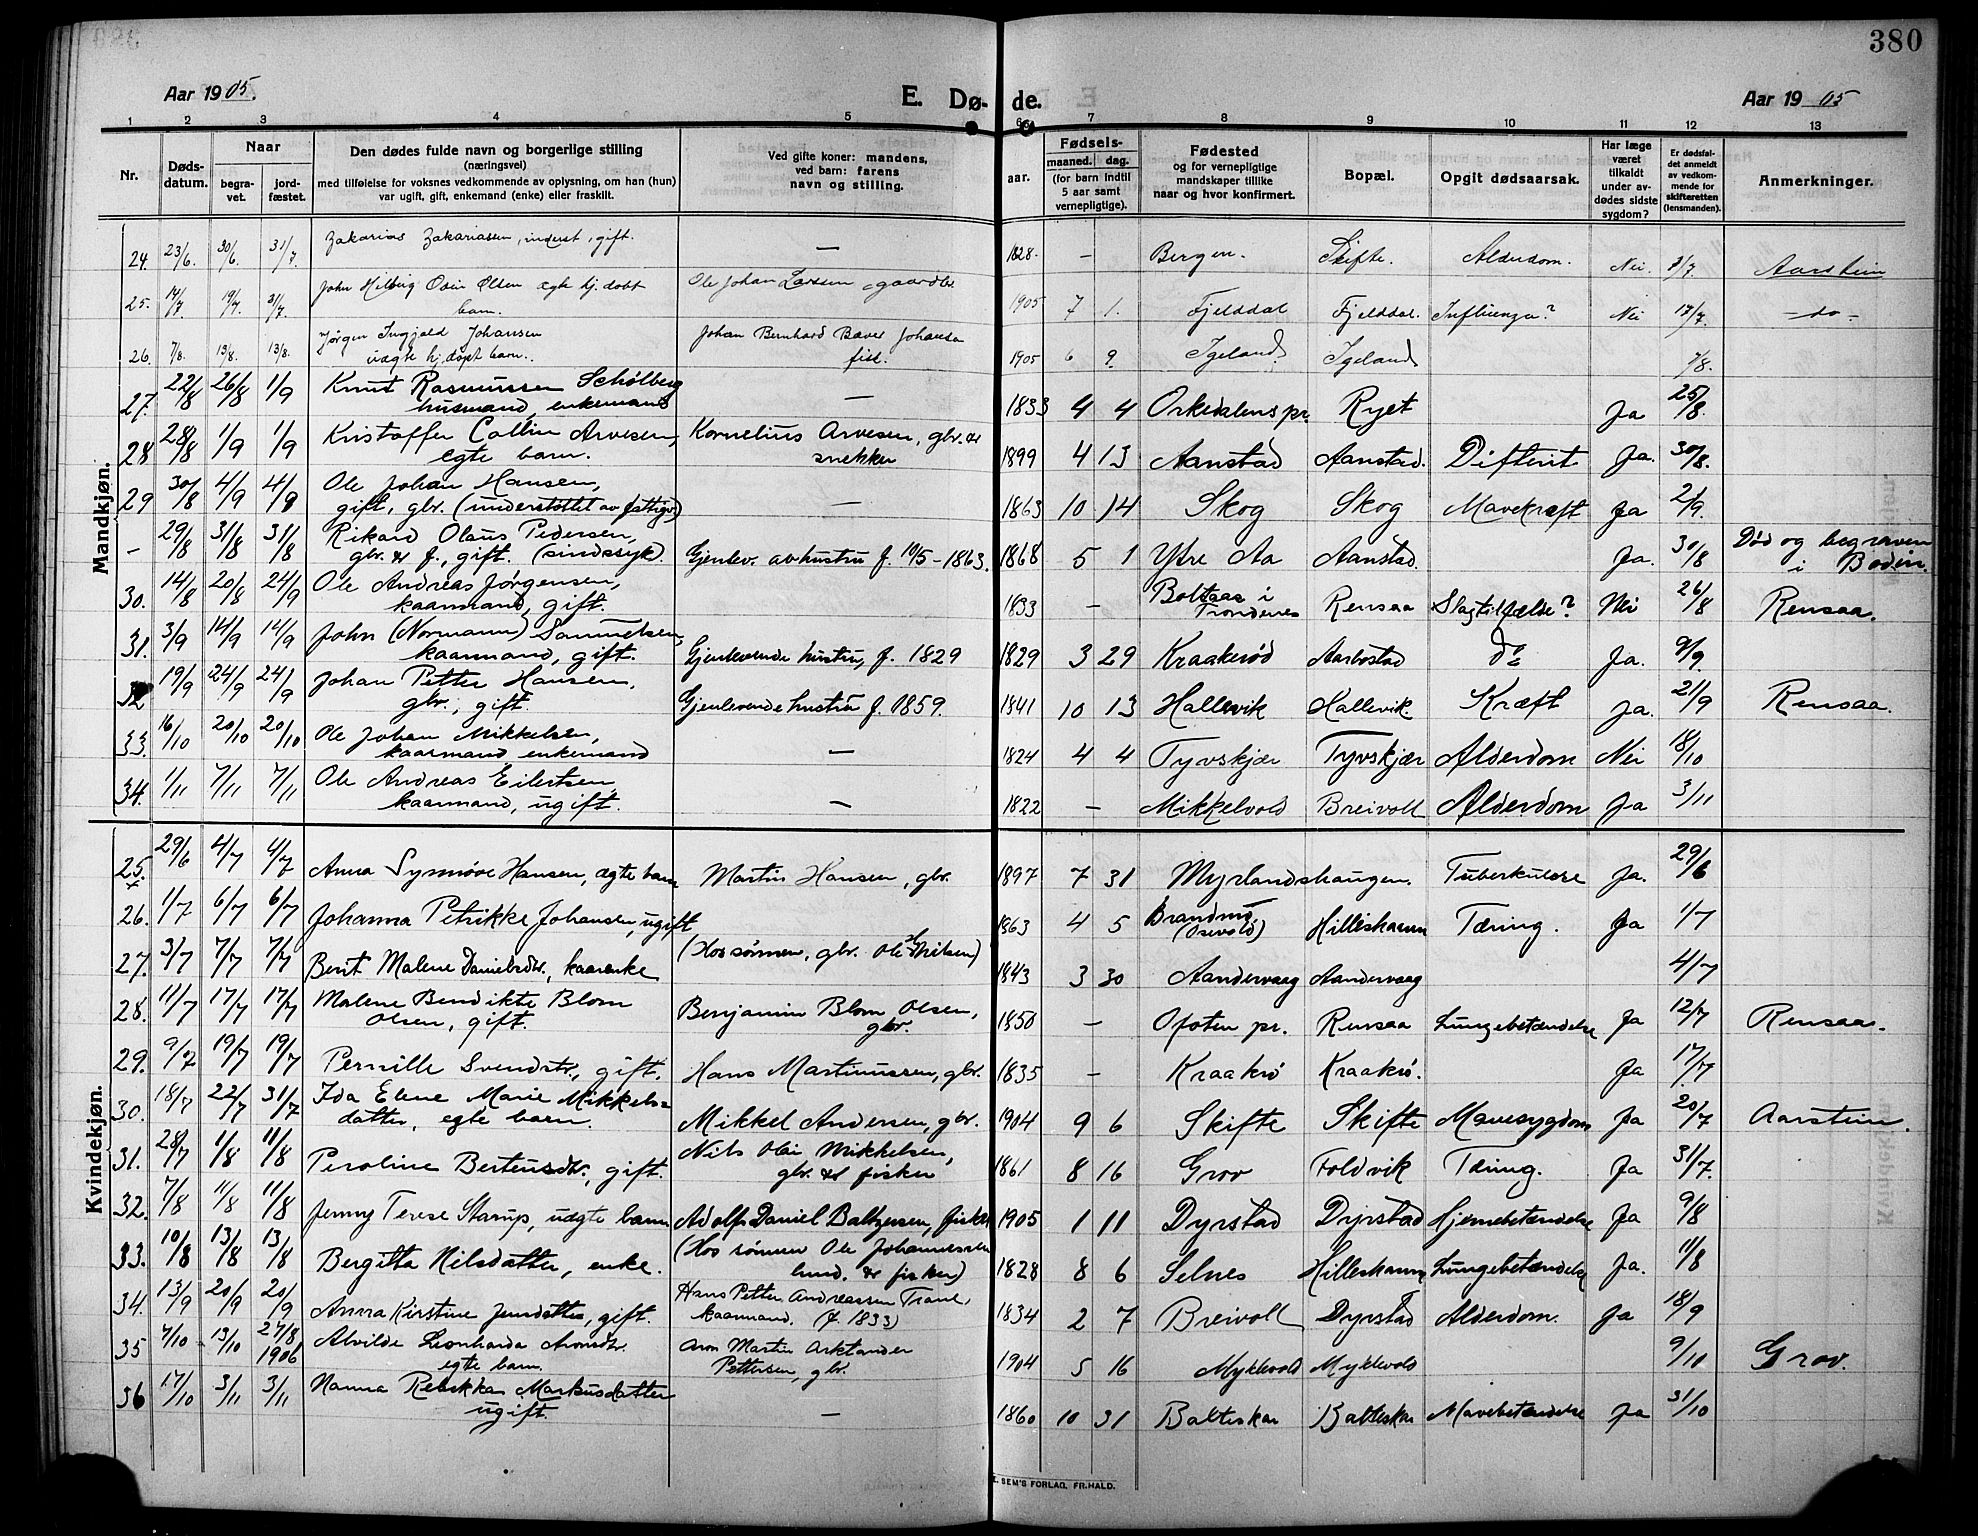 380
Aar 1905.
E. Dø-
de.
Aar 1905
1 2 3 4 5 6 7 8 9 10 11 12 13
Nr.
Døds-
datum.
Naar
begra-
vet.
jord-
fæstet.
Den dødes fulde navn og borgerlige stilling
(næringsvei)
med tilføielse for voksnes vedkommende av oplysning, om han (hun)
var ugift, gift, enkemand (enke) eller fraskilt.
Ved gifte koner: mandens,
ved barn: farens
navn og stilling.
Fødsels-
aar.
maaned. dag.
(for barn indtil
5 aar samt
vernepligtige).
Fødested
og for vernepligtige
mandskaper tillike
naar og hvor konfirmert.
Bopæl.
Opgit dødsaarsak.
Har læge
været
tilkaldt
under av-
dødes sidste
sygdom?
Er dødsfal-
det anmeldt
av vedkom-
mende for
skifteretten
(lensmanden).
Anmerkninger.
Mandkjøn.
24. 23/6. 30/6. 31/7. Zakarias Zakariassen, inderst, gift. — 1828. — Bergen. Skifte. Alderdom. Nei. 7/7. Aarstein
25. 14/7. 19/7. 31/7. John Hilbrig Odin Olsen ægte hj. døbt Ole Johan Larsen gaardbr.
barn. 1905 7 1. Fjelddal Fjelddal. Influenza? Nei 17/7. —do—
26. 7/8. 13/8. 13/8. Jørgen Ingjald Johansen Johan Bernhard Baver Johansen
uægte hj. døpt barn. fisk. 1905 6 9. Igeland Igeland 7/8.
27. 22/8 26/8 1/9 Knut Rasmussen Schølberg
husmand, enkemand — 1833 4 4 Orkedalens pr. Ryet Ja 25/8.
28 28/8 1/9 1/9 Kristoffer Collin Arvesen, Kornelius Arvesen, gbr. &
egte barn. snekker 1899 4 13 Aanstad Aanstad. Difterit Ja. 30/8.
29 30/8 4/9 4/9 Ole Johan Hansen,
gift, gbr. (understøttet av fattigv.) — 1863 10 14 Skog Skog Mavekræft Ja 2/9.
— 29/8 31/8 31/8 Rikard Olaus Pedersen,
gbr. & f., gift. (sindssyk). Gjenlev. avhustru f. 10/5-1863. 1868 5 1 Ytre Aa Aanstad. Ja. 30/8 Død og begraven
i Bodin.
30. 14/8 20/8 24/9 Ole Andreas Jørgensen,
kaarmand, gift. 1833 — Boltaas i
Trondenes Rensaa Slagtilfælde? Nei 26/8 Rensaa.
31. 3/9 14/9 14/9 John (Normann) Samuelsen,
kaarmand, gift. Gjenlevende hustru, f. 1829 1829 3 29 Kraakerød Aarbostad do Ja. 9/9
32 19/9 24/9 24/9 Johan Petter Hansen,
gbr., gift. Gjenlevende hustru f. 1859. 1841 10 13 Hallevik Hallevik. Kræft Ja. 21/9 Rensaa.
33. 16/10 20/10 20/10 Ole Johan Mikkelsen,
kaarmand enkemand — 1824 4 4 Tyvskjær Tyvskjær Alderdom Nei 18/10
34. 1/11 7/11 7/11 Ole Andreas Eilertsen,
kaarmand, ugift. — 1822 — Mikkelvold Breivoll Alderdom Ja 3/11
Kvindekjøn.
25. 29/6 4/7 4/7 Anna Synnøve Hansen, ægte barn Martin Hansen, gbr. 1897 7 31 Myrlandshaugen. Tuberkulose Ja. 29/6
26. 1/7 6/7 6/7 Johanna Petrikke Johansen, ugift 1863 4 5 Brandmo
(Osevold) Hilleshamn Tæring. Ja 1/7
27. 3/7 7/7 7/7 Berit Malene Danielsdtr., kaarenke (Hos sønnen, gbr. Ole H. Nilsen) 1843 3 30 Aandervaag Aandervaag 4/7
28. 11/7 17/7 17/7 Malene Bendikte Blom Benjamin Blom Olsen,
Olsen, gift. gbr. 1850 — Ofoten pr. Rensaa Lungebetændelse Ja 12/7 Rensaa.
29. 9/7 19/7 19/7 Pernille Svendsdtr., gift. Hans Martinussen, gbr. 1835 — Kraakrø Kraakrø. Ja 17/7
30. 18/7 22/7 31/7 Ida Elene Marie Mikkels-
datter, egte barn. Mikkel Andersen, gbr. 1904 9 6 Skifte Skifte Mavesygdom Ja 20/7 Aarstein.
31. 28/7 1/8 11/8 Peroline Bertensdtr., gift. Nils Olai Mikkelsen,
gbr. & fisker 1861 8 16 Grov Foldvik Tæring. Ja 31/7.
32. 7/8 11/8 11/8 Jenny Terese Starup, uægte barn Adolf Daniel Baltzersen, fisker 1905 1 11 Dyrstad Dyrstad Hjernebetændelse Ja 9/8
33. 10/8 13/8 13/8 Bergitta Nilsdatter, enke. (Hos sønnen Ole Johannessen
husd. & fisker) 1828 8 6 Selnes Hilleshamn Lungebetændelse Ja. 11/8
34. 13/9 20/9 20/9 Anna Kirstine Jensdatter, gift. Hans Petter Andreassen Trane,
kaarmand. (f. 1833) 1834 2 7 Breivoll Dyrstad Alderdom. Ja 18/9
35 7/10 13/10 27/8 1906 Alvilde Leonharda Aronsdtr. Aron Martin Arktander
egte barn. Pettersen, gbr. 1904 5 16 Myklevold Myklevold 9/10 Grov.
36 17/10 3/11 3/11 Nanna Rebekka Markusdatter
ugift. — 1860 10 31 Balteskar Balteskar Mavebetændelse Ja 31/10
E. SEM'S FORLAG, FR.HALD.